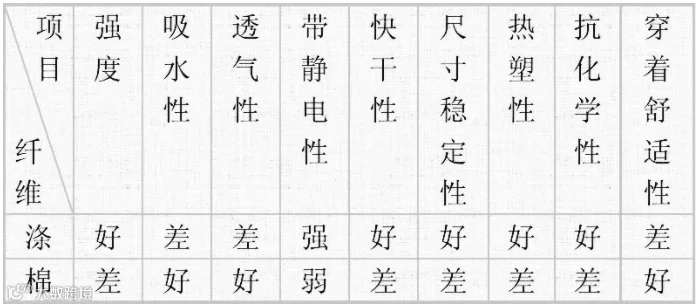 项目 纤维 强度 吸水性 透气性 带静电性 快干性 尺寸稳定性 热塑性 抗化学性 穿着舒适性
涤 好 差 差 强 好 好 好 好 差
棉 差 好 好 弱 差 差 差 差 好
大数跨境